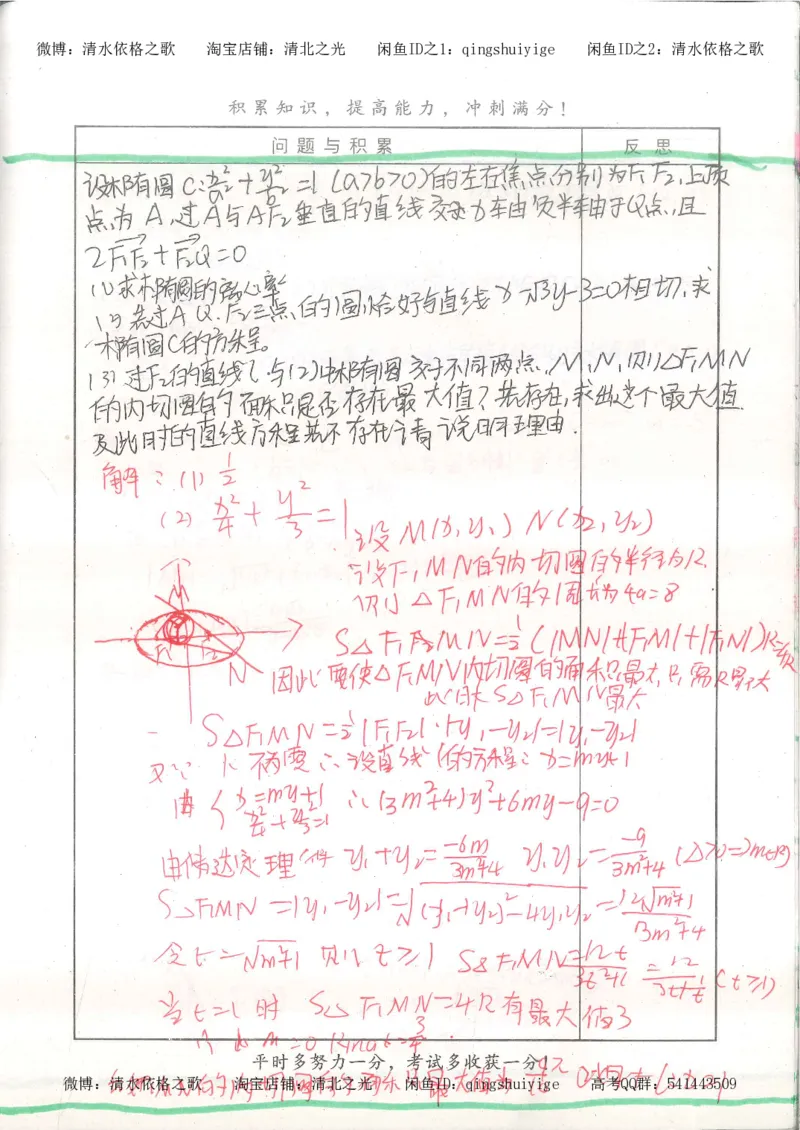 微博：清水依格之歌 淘宝店铺：清北之光 闲鱼ID之1：qingshuiyige 闲鱼ID之2：清水依格之歌
积累知识，提高能力，冲刺满分！
问题与积累 反思
设椭圆C:x²/a²+y²/b²=1 (a>b>0)的左右焦点分别为F₁ F₂,上顶
点为A,过A与AF₂垂直的直线交x轴负半轴于Q点,且
2F₁F₂+F₂Q=0
(1)求椭圆的离心率
(2)若过A Q.F₂三点的圆恰好与直线x-√3y-3=0相切,求
椭圆C的方程。
(3)过F₂的直线l与(2)中椭圆交于不同两点,M、N,则△F₁MN
的内切圆的面积是否存在最大值?若存在,求出这个最大值
及此时的直线方程若不存在请说明理由.
解:(1) 1/2
(2) x²/4+y²/3=1
设M(x₁,y₁) N(x₂,y₂)
设F₁MN的内切圆的半径为R.
则△F₁MN的周长为4a=8
M
F₁ F₂
N
因此要使△F₁MN内切圆的面积最大,只需R最大
此时S△F₁MN最大
S△F₁MN=1/2|F₁F₂|·|y₁-y₂|=|y₁-y₂|
设直线l的方程:x=my+1
由{x=my+1 x²/4+y²/3=1 ∴(3m²+4)y²+6my-9=0
由韦达定理得 y₁+y₂=-6m/3m²+4 y₁y₂=-9/3m²+4
S△F₁MN=|y₁-y₂|=√(y₁+y₂)²-4y₁y₂=12√m²+1/3m²+4
令t=√m²+1 则t≥1 S△F₁MN=12t/3t²+1=12/3t+1/t (t≥1)
当t=1时 S△F₁MN=4R有最大值3
平时多努力一分，考试多收获一分！
微博：清水依格之歌 淘宝店铺：清北之光 闲鱼ID：qingshuiyige 高考QQ群：541443509